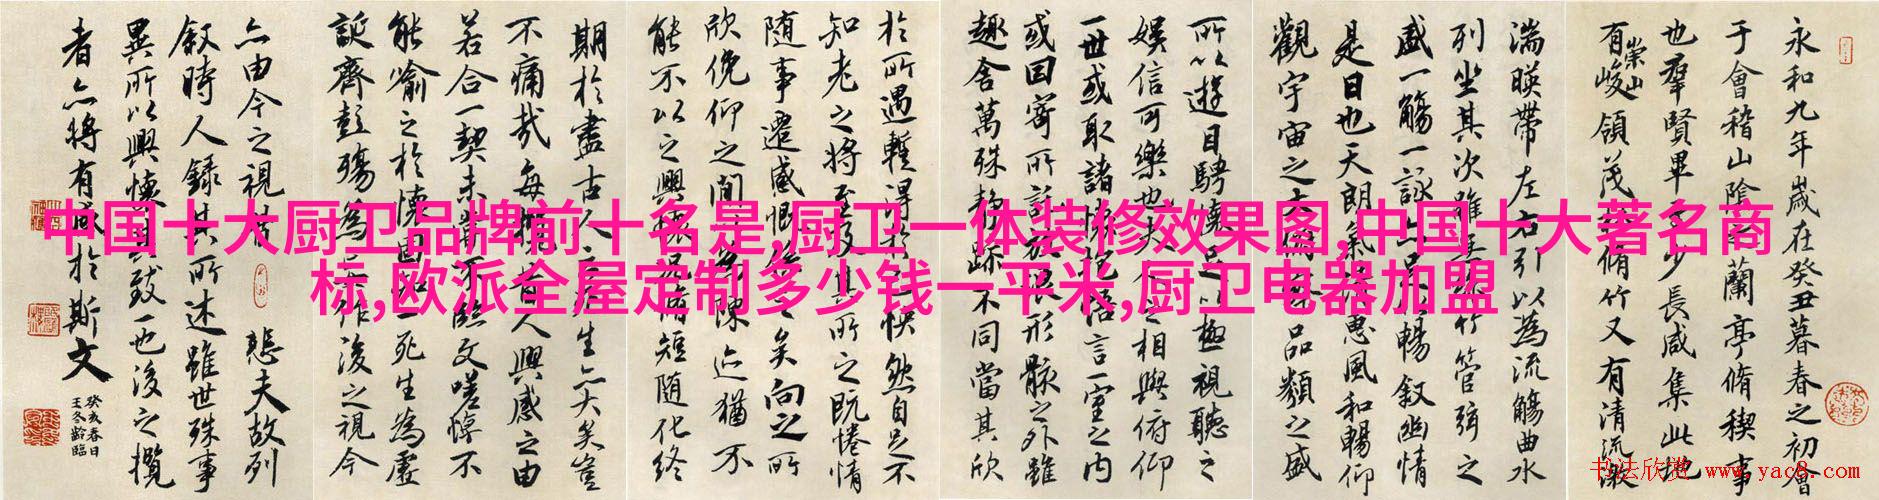 中国十大厨卫品牌前十名是,厨卫一体装修效果图,中国十大著名商
标,欧派全屋定制多少钱一平米,厨卫电器加盟
永和九年歲在癸丑暮春之初會
于會稽山陰之蘭亭脩稧事
也羣賢畢至少長咸集此地
有崇山峻領茂林脩竹又有清流激
湍暎帶左右引以為流觴曲水
列坐其次雖無絲竹管弦之
盛一觴一詠亦足以暢叙幽情
是日也天朗氣清惠風和暢仰
觀宇宙之大俯察品類之盛
所以遊目騁懷足以極視聽之
娛信可樂也夫人之相與俯仰
一世或取諸懷抱悟言一室之內
或因寄所託放浪形骸之外雖
趣舍萬殊靜躁不同當其欣
於所遇暫得於己怏然自足不
知老之將至及其所之既惓情
隨事遷感慨係之矣向之所
欣俛仰之間以為陳迹猶不
能不以之興懷況脩短隨化終
期於盡古人云死生亦大矣豈
不痛哉每攬昔人興感之由
若合一契未嘗不臨文嗟悼不
能喻之於懷固知一死生為虛
誕齊彭殤為妄作後之視今
亦由今之視昔悲夫故列
叙時人錄其所述雖世殊事
異所以興懷其致一也後之攬
者亦將有感於斯文
癸亥春日
王冬齡臨
书法欣赏 www.yac8.com